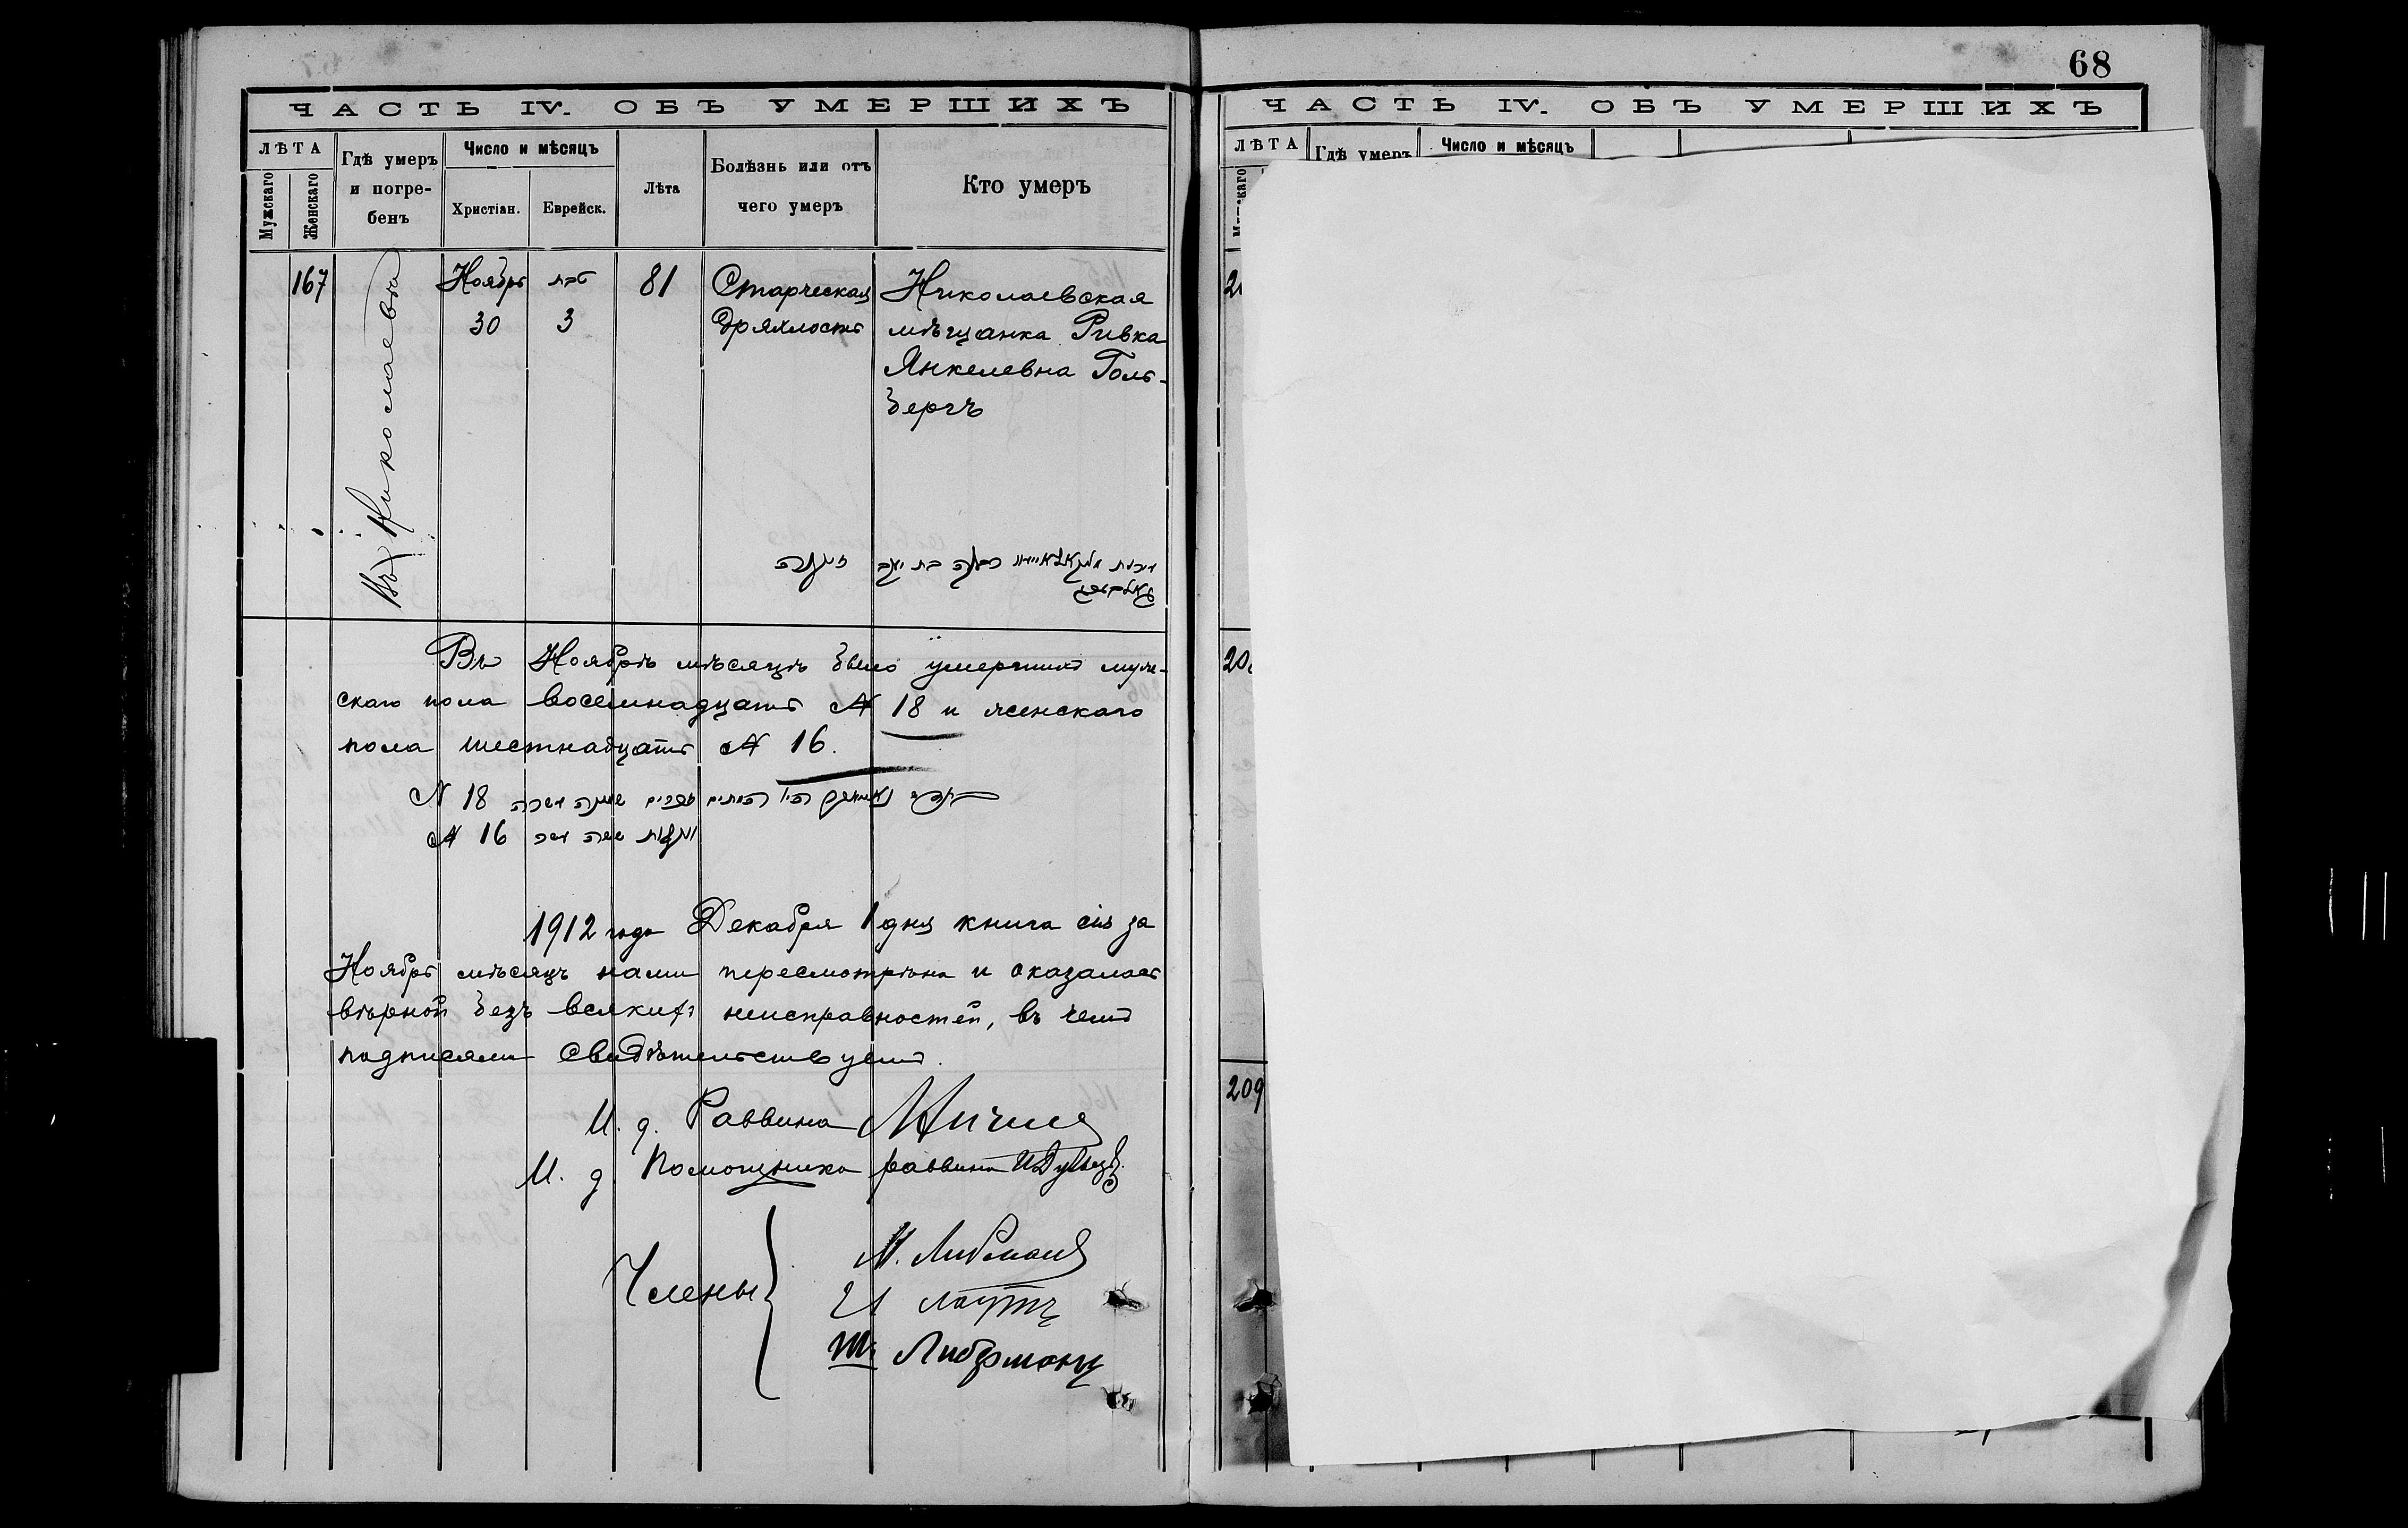 68
ЧАСТЬ IV. ОБЪ УМЕРШИХЪ
ЛѢТА
Мужскаго
Женскаго
Гдѣ умеръ
и погре-
бенъ
Число и мѣсяцъ
Христіан.
Еврейск.
Лѣта
Болѣзнь или отъ
чего умеръ
Кто умеръ
167
Въ Николаевѣ
Ноябрь
30
טבת
3
81
Старческая
дряхлость
Николаевская
мѣщанка Ривка
Янкелевна Голь-
бергъ
Въ Ноябрѣ мѣсяцѣ было умершихъ муж-
скаго пола восемнадцать № 18 и женскаго
пола шестнадцать № 16.
N 18
№ 16
1912 года Декабря 1 дня книга сія за
Ноябрь мѣсяцъ нами пересмотрѣна и оказалась
вѣрной безъ всякихъ неисправностей, въ чемъ
подписями свидѣтельствуемъ.
И. д. Раввина
И. д. Помощника раввина
Члены
М. Либманъ
И
Ш. Либерманъ
ЧАСТЬ IV. ОБЪ УМЕРШИХЪ
ЛѢТА
Гдѣ умеръ
Число и мѣсяцъ
209